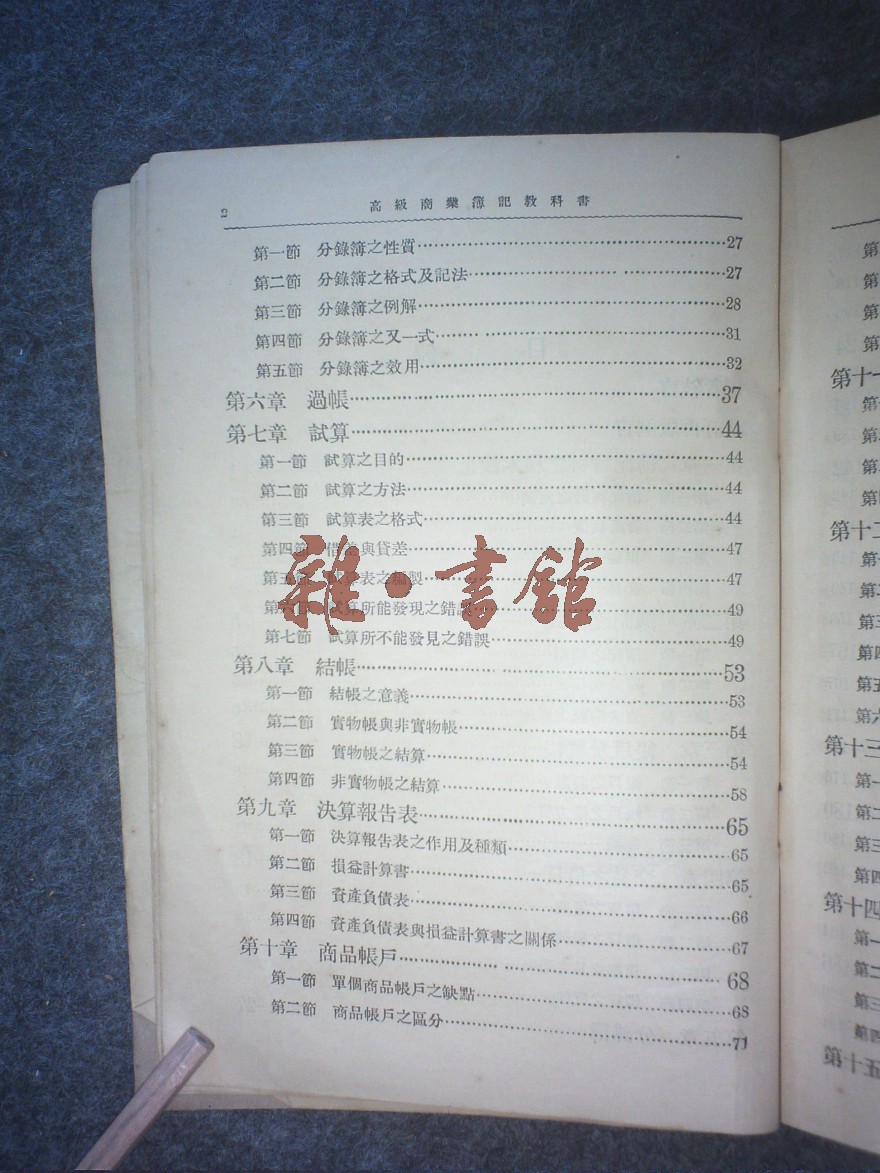 2 高級商業簿記教科書
第一節 分錄簿之性質……27
第二節 分錄簿之格式及記法……27
第三節 分錄簿之例解……28
第四節 分錄簿之又一式……31
第五節 分錄簿之效用……32
第六章 過帳……37
第七章 試算……44
第一節 試算之目的……44
第二節 試算之方法……44
第三節 試算表之格式……44
第四節 借差與貸差……47
第五節 試算表之編製……47
第六節 試算所能發現之錯誤……49
第七節 試算所不能發見之錯誤……49
雜·書館
第八章 結帳……53
第一節 結帳之意義……53
第二節 實物帳與非實物帳……54
第三節 實物帳之結算……54
第四節 非實物帳之結算……58
第九章 決算報告表……65
第一節 決算報告表之作用及種類……65
第二節 損益計算書……65
第三節 資產負債表……66
第四節 資產負債表與損益計算書之關係……67
第十章 商品帳戶……68
第一節 單個商品帳戶之缺點……68
第二節 商品帳戶之區分……71
第十一
第十二
第十三
第十四
第十五